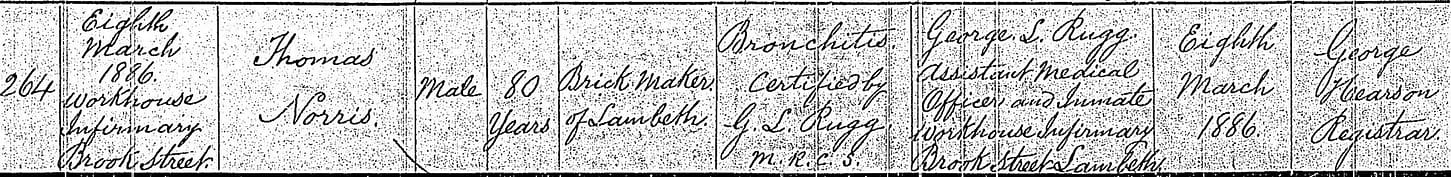 264
Eighth
March
1886.
Workhouse
Infirmary
Brook Street.
Thomas
Norris.
Male
80
Years
Brick Maker
of Lambeth.
Bronchitis.
Certified by
G. L. Rugg
M. R. C. S.
George. L. Rugg.
Assistant Medical
Officer and Inmate
Workhouse Infirmary
Brook Street Lambeth
Eighth
March
1886.
George
Hearson
Registrar.